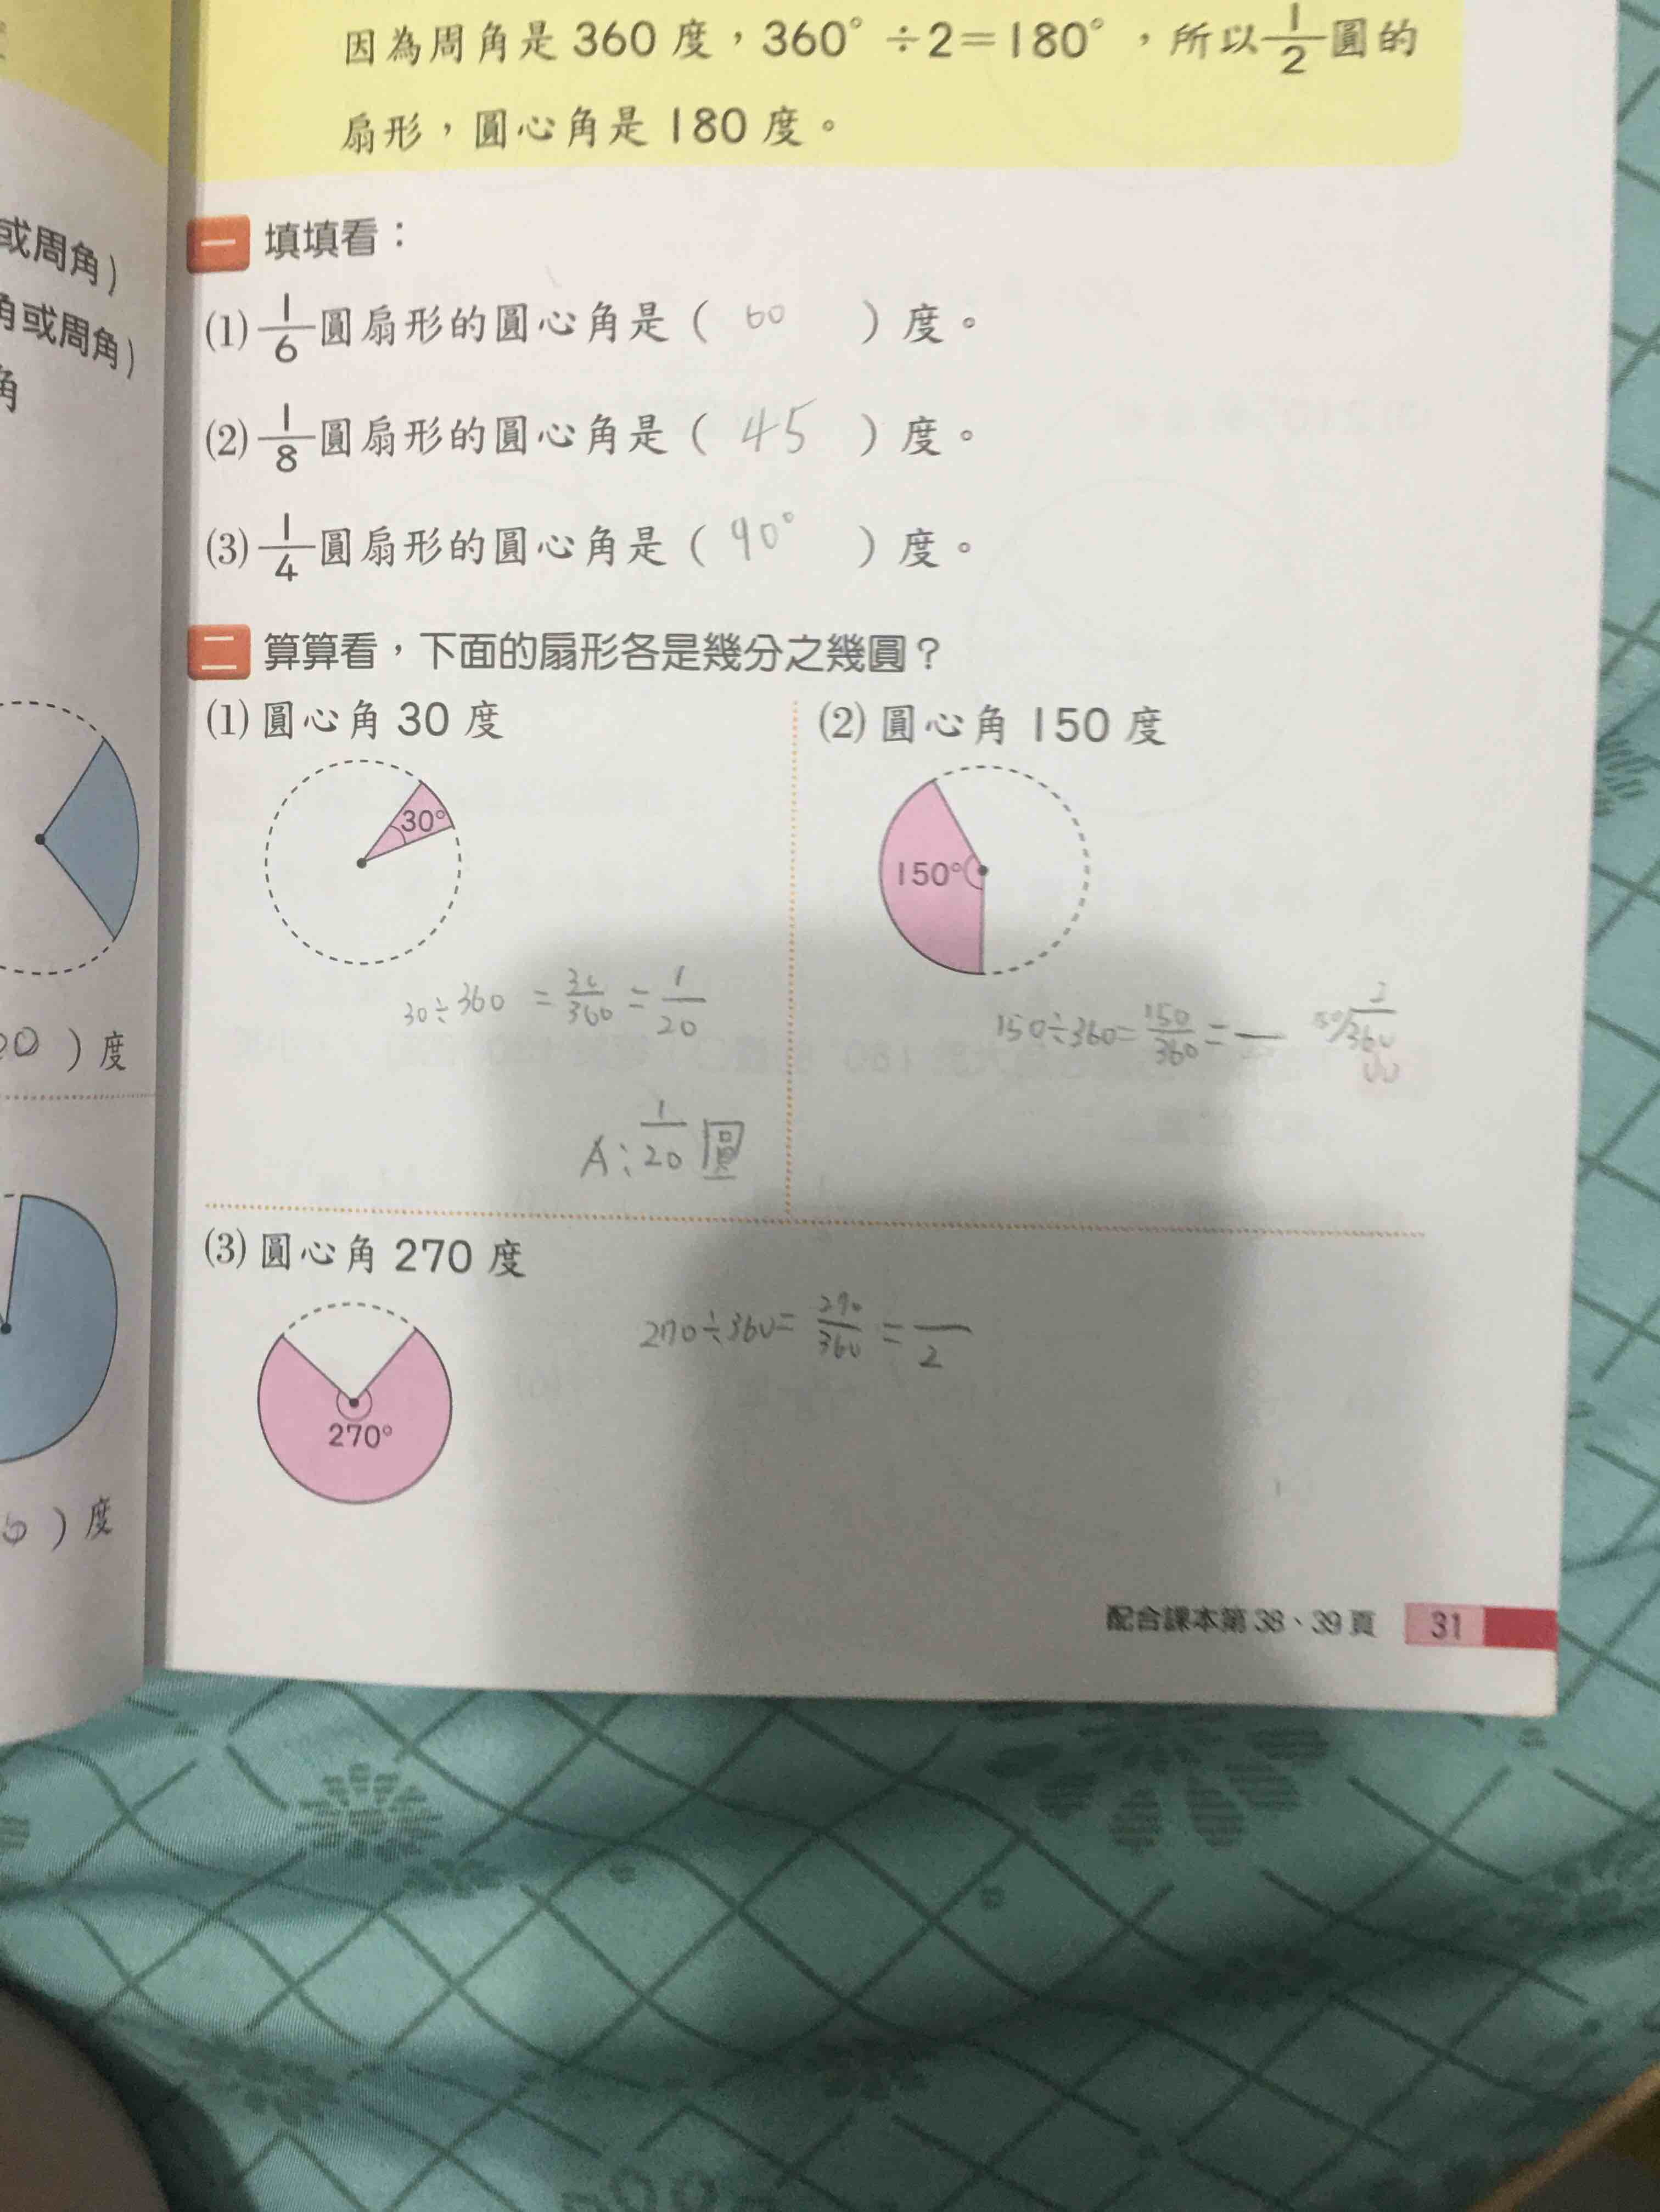 因為周角是360度，360°÷2=180°，所以1/2圓的
扇形，圓心角是180度。
或周角)
角或周角)
角
)度
)度
一 填填看：
(1) 1/6圓扇形的圓心角是( 60 )度。
(2) 1/8圓扇形的圓心角是( 45 )度。
(3) 1/4圓扇形的圓心角是( 90° )度。
二 算算看，下面的扇形各是幾分之幾圓？
(1) 圓心角30度
30°
30÷360=30/360=1/20
A:1/20圓
(2) 圓心角150度
150°
150÷360=150/360=
(3) 圓心角270度
270°
270÷360=270/360= /2
配合課本第38、39頁 31